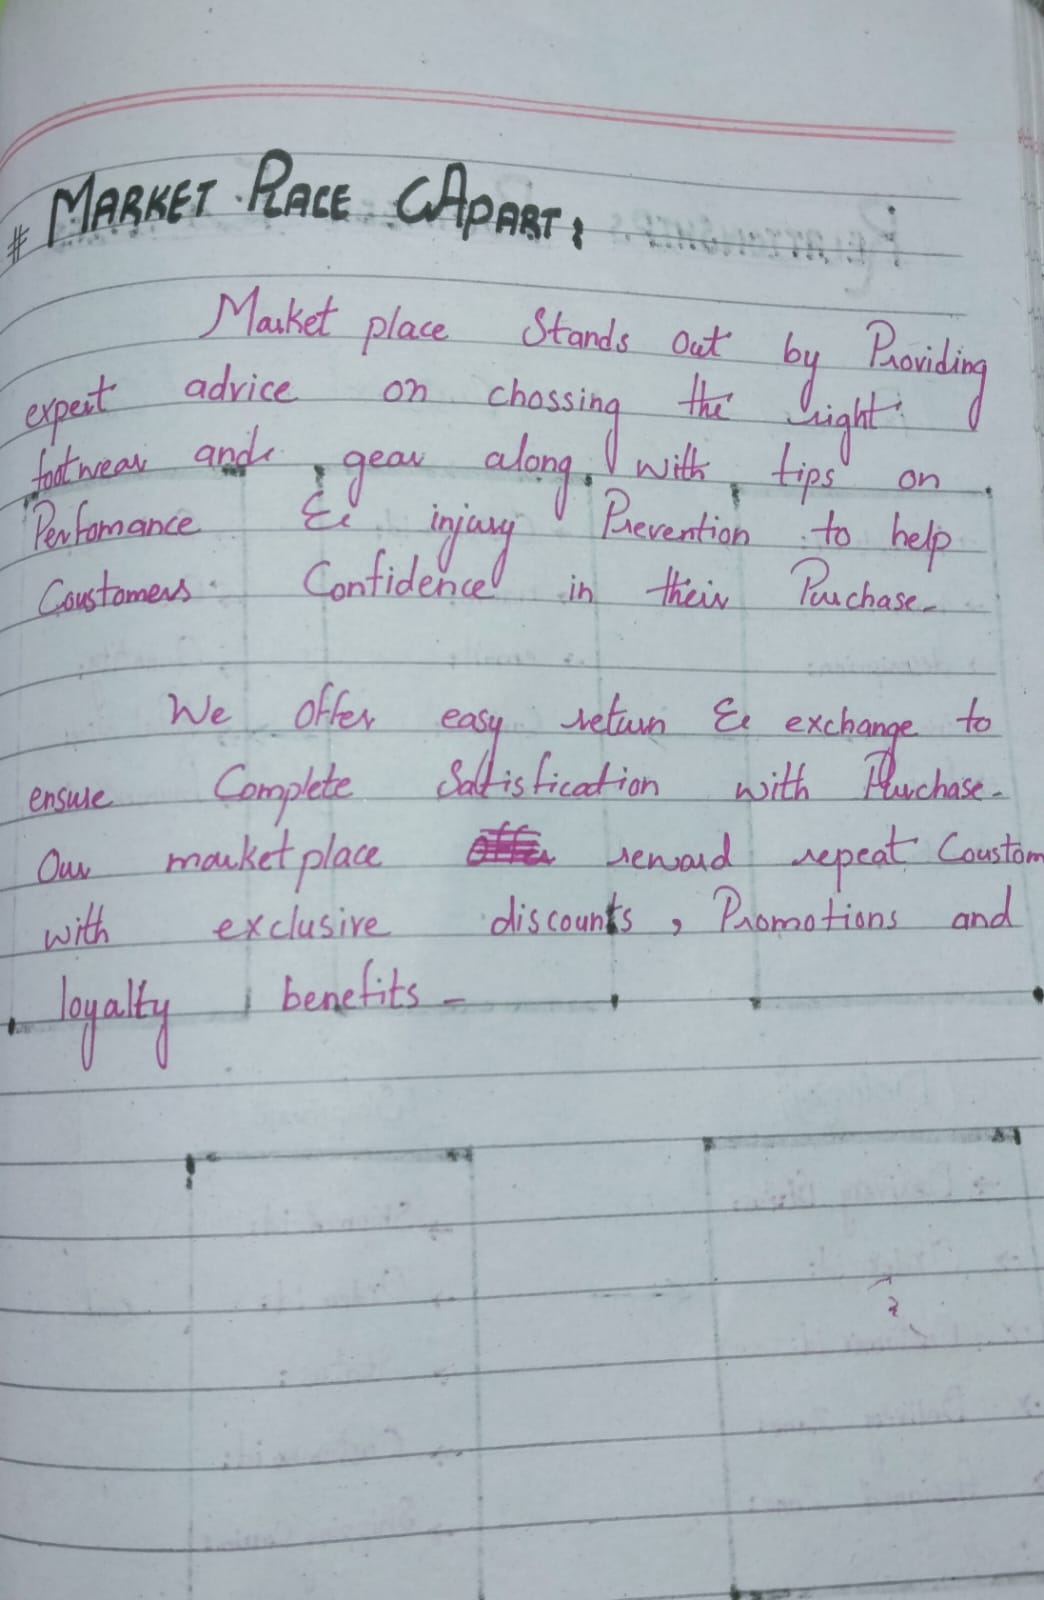 # MARKET PLACE APART:
Market place Stands out by Providing
expert advice on chossing the right
footwear and gear along with tips on
Perfomance & injury Prevention to help
Coustomers Confidence in their Purchase.
We offer easy return & exchange to
ensure Complete Saltisfication with Purchase.
Our marketplace reward repeat Coustom
with exclusive discounts, Promotions and
loyalty benefits.